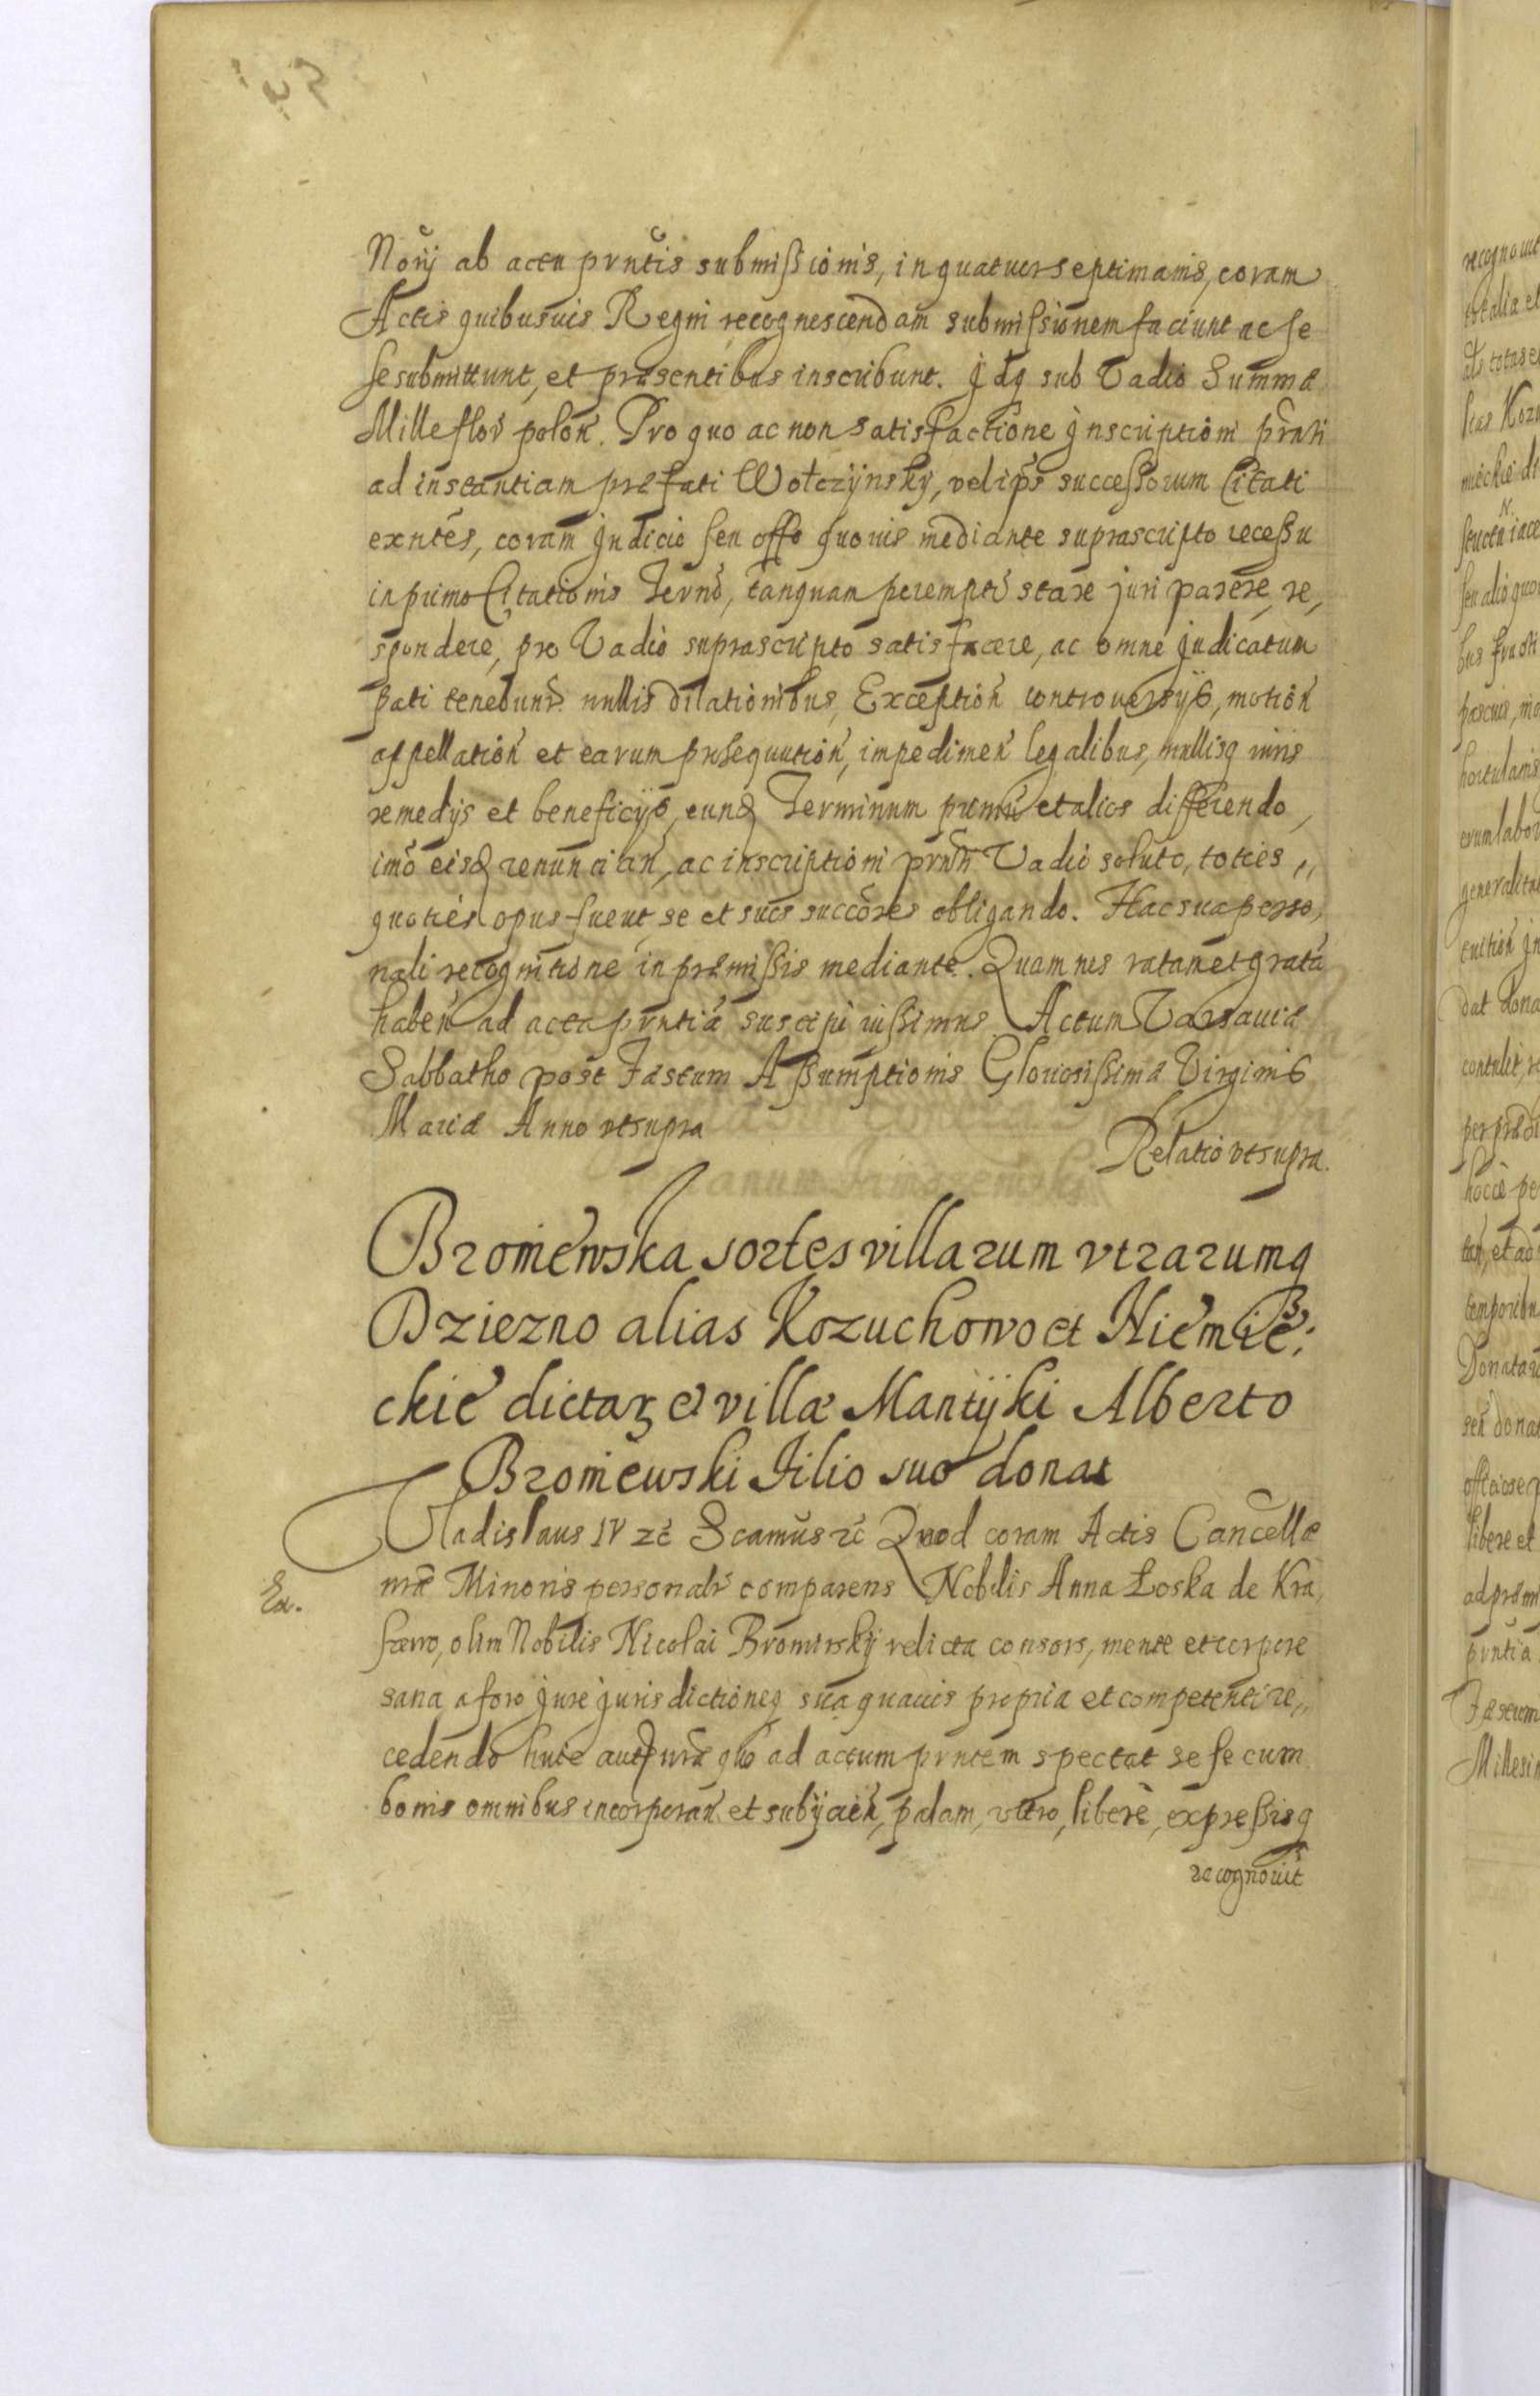 Norÿ ab actu pvntis submißionis, in quatuor septimanis, coram
Actis quibusuis Regni recognescendam submissionem faciunt ac se
se submittunt, et præsentibus inscribunt. Jdq sub Vadio Summæ
Mille flor polon. Pro quo ac non satisfactione Jnscriptioni prnti
ad instantiam præfati Wołczÿnskÿ, vel ips successorum Citati
exntes, coram Judicio seu offo quouis mediante suprascripto recessu
in primo Citationis Terno, tanquam perempto stare juri parere, re,
spondere, pro Vadio suprascripto satisfacere, ac omne judicatum
pati tenebunt nullis dilationibus, Exception controuersijs, motion
appellation et earum prosequution, impedimen legalibus, nullisq iuris
remedijs et beneficijs, eund Terminum primu et alios differendo,
imo eisd renuncian, ac inscriptioni prntti Vadio soluto, toties,,
quoties opus fuerit se et suos succores obligando. Hac sua perso,
nali recognitione in præmissis mediante. Quam nos ratam et grata
haben ad acta pvntia suscipi iussimus. Actum Varsauiæ
Sabbatho post Fæstum Assumptionis Gloriosissimæ Virginis
Mariæ Anno vt supra
Relatio vt supra.
Broniewska sortes villarum vtrarumq
Dziezno alias Kozuchowo et Niemie:
ckie dictaz et villæ Mantÿki Alberto
Broniewski Filio suo donat
Vladislaus IV zc Scamus zc Quod coram Actis Cancellæ
nræ Minoris personalr comparens Nobilis Anna Łoska de Kra,
sewo, olim Nobilis Nicolai Bromirskÿ relicta consors, mente et corpore
sana a foro jure jurisdictioneq sua quauis propria et competenti re,,
cedendo huic aut uræ quo ad actum pvntem spectat sese cum
bonis omnibus incorporan et subijcien, palam, vltro, liberè, expressisq
Ex.
recognouit